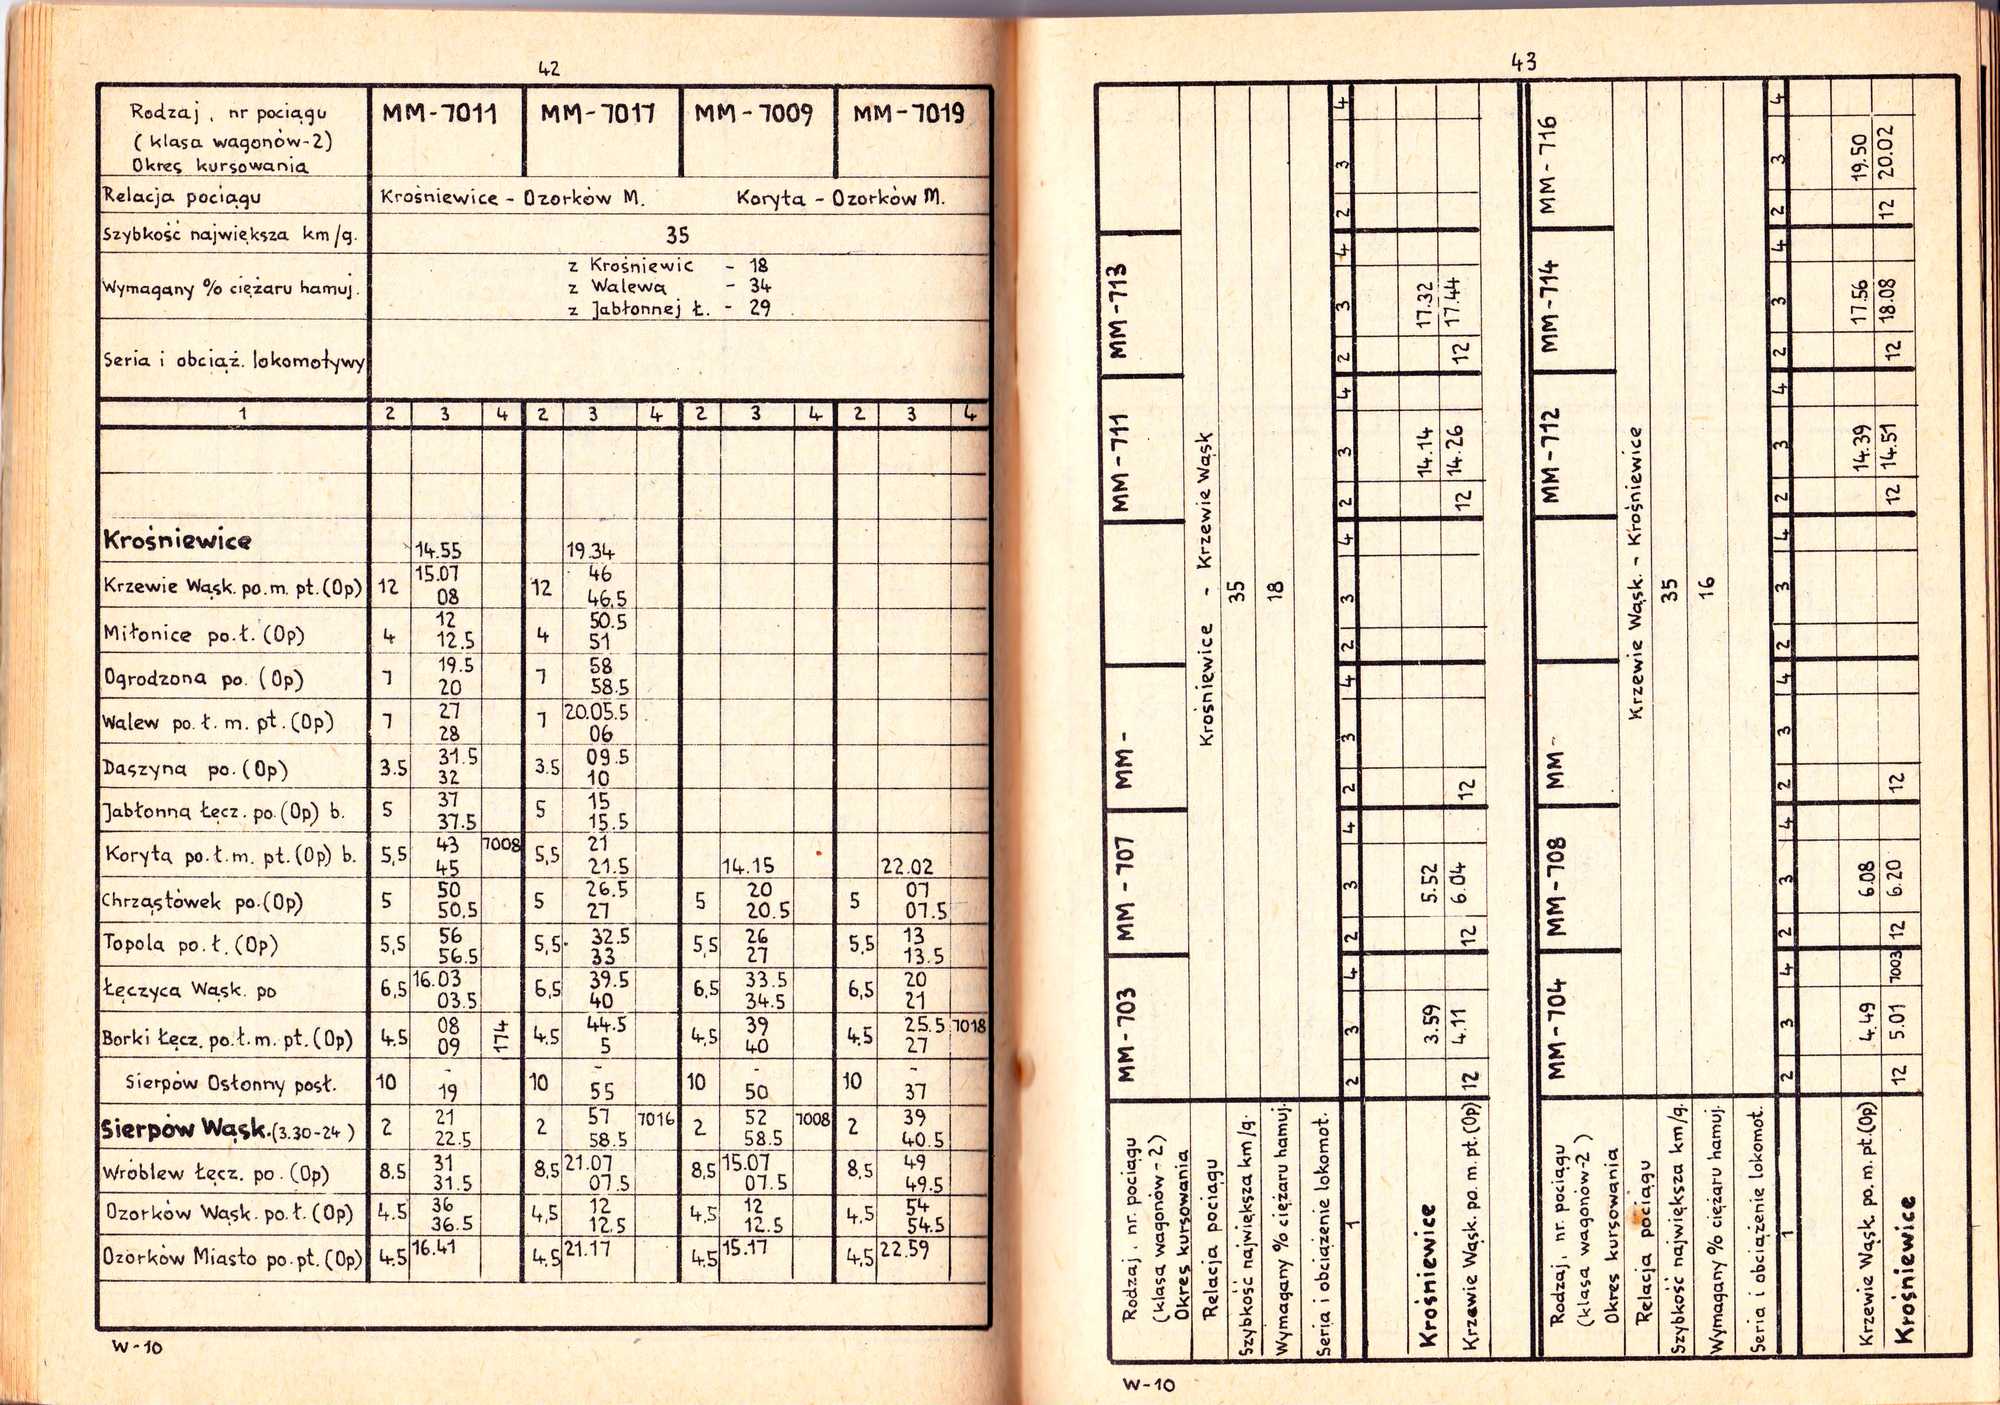 42
Rodzaj, nr pociągu MM-7011 MM-7017 MM-7009 MM-7019
( klasa wagonów-2)
Okres kursowania
Relacja pociągu Krośniewice - Ozorków M. Koryta - Ozorków M.
Szybkość największa km/g. 35
z Krośniewic - 18
Wymagany % ciężaru hamuj. z Walewa - 34
z Jabłonnej Ł. - 29
Seria i obciąż. lokomotywy
1 2 3 4 2 3 4 2 3 4 2 3 4
Krośniewice 14.55 19.34
15.07 46
Krzewie Wąsk. po.m. pt.(Op) 12 08 12 46.5
12 50.5
Miłonice po.ł. (Op) 4 12.5 4 51
19.5 58
Ogrodzona po. (Op) 7 20 7 58.5
27 20.05.5
Walew po.ł. m. pt. (Op) 7 28 7 06
31.5 09.5
Daszyna po. (Op) 3.5 32 3.5 10
37 15
Jabłonna Łęcz. po. (Op) b. 5 37.5 5 15.5
43 7008 21
Koryta po.ł.m. pt.(Op) b. 5,5 45 5,5 21.5 14.15 22.02
50 26.5 20 07
Chrząstówek po.(Op) 5 50.5 5 27 5 20.5 5 07.5
56 32.5 26 13
Topola po.ł. (Op) 5,5 56.5 5,5 33 5,5 27 5,5 13.5
16.03 39.5 33.5 20
Łęczyca Wąsk. po 6,5 03.5 6,5 40 6,5 34.5 6,5 21
08 44.5 39 25.5 7018
Borki Łęcz. po.ł.m. pt. (Op) 4.5 09 174 4.5 5 4,5 40 4.5 27
- - - -
Sierpów Osłonny post. 10 19 10 55 10 50 10 37
21 57 7016 52 7008 39
Sierpów Wąsk.(3.30-24) 2 22.5 2 58.5 2 58.5 2 40.5
31 21.07 15.07 49
Wróblew Łęcz. po. (Op) 8.5 31.5 8,5 07.5 8,5 07.5 8,5 49.5
36 12 12 54
Ozorków Wąsk. po.ł. (Op) 4.5 36.5 4,5 12.5 4,5 12.5 4.5 54.5
Ozorków Miasto po.pt. (Op) 4.5 16.41 4.5 21.17 4.5 15.17 4,5 22.59
W-10
43
Rodzaj, nr. pociągu MM-703 MM-707 MM- MM-711 MM-713
(klasa wagonów-2)
Okres kursowania
Relacja pociągu Krośniewice - Krzewie Wąsk
Szybkość największa km/g. 35
Wymagany % ciężaru hamuj. 18
Seria i obciążenie lokomot.
1 2 3 4 2 3 4 2 3 4 2 3 4 2 3 4 2 3 4 2 3 4
Krośniewice 3.59 5.52 14.14 17.32
Krzewie Wąsk. po. m. pt.(Op) 12 4.11 12 6.04 12 12 14.26 12 17.44
Rodzaj, nr pociągu MM-704 MM-708 MM- MM-712 MM-714 MM-716
(klasa wagonów-2 )
Okres kursowania
Relacja pociągu Krzewie Wąsk. - Krośniewice
Szybkość największa km/g. 35
Wymagany % ciężaru hamuj. 16
Seria i obciążenie lokomot.
1 2 3 4 2 3 4 2 3 4 2 3 4 2 3 4 2 3 4 2 3 4
Krzewie Wąsk. po. m. pt.(Op) 4.49 6.08 14.39 17.56 19.50
Krośniewice 12 5.01 7003 12 6.20 12 12 14.51 12 18.08 12 20.02
W-10